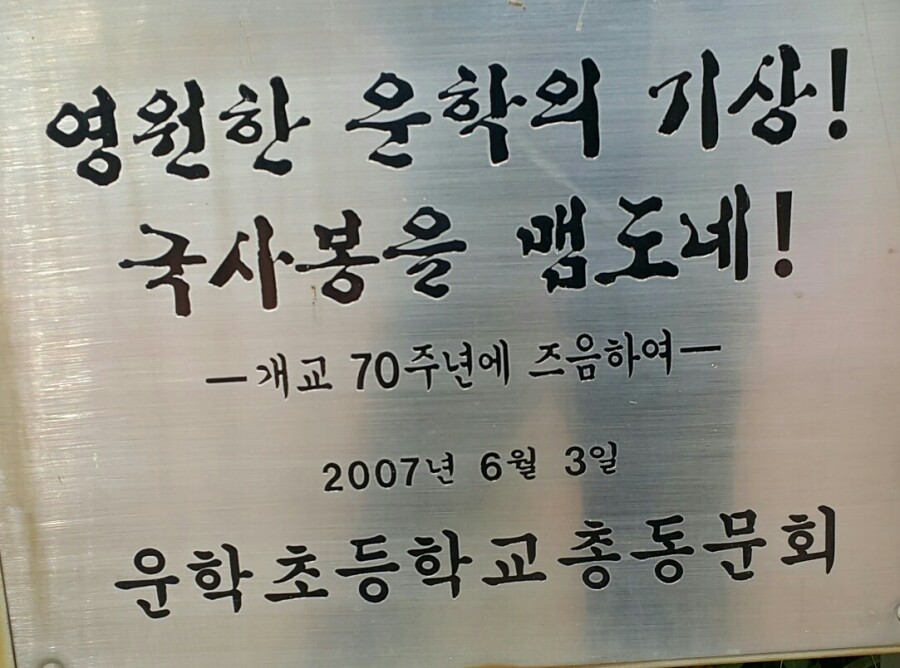 영원한 운학의 기상!
국사봉을 맴도네!
—개교 70주년에 즈음하여—
2007년 6월 3일
운학초등학교총동문회